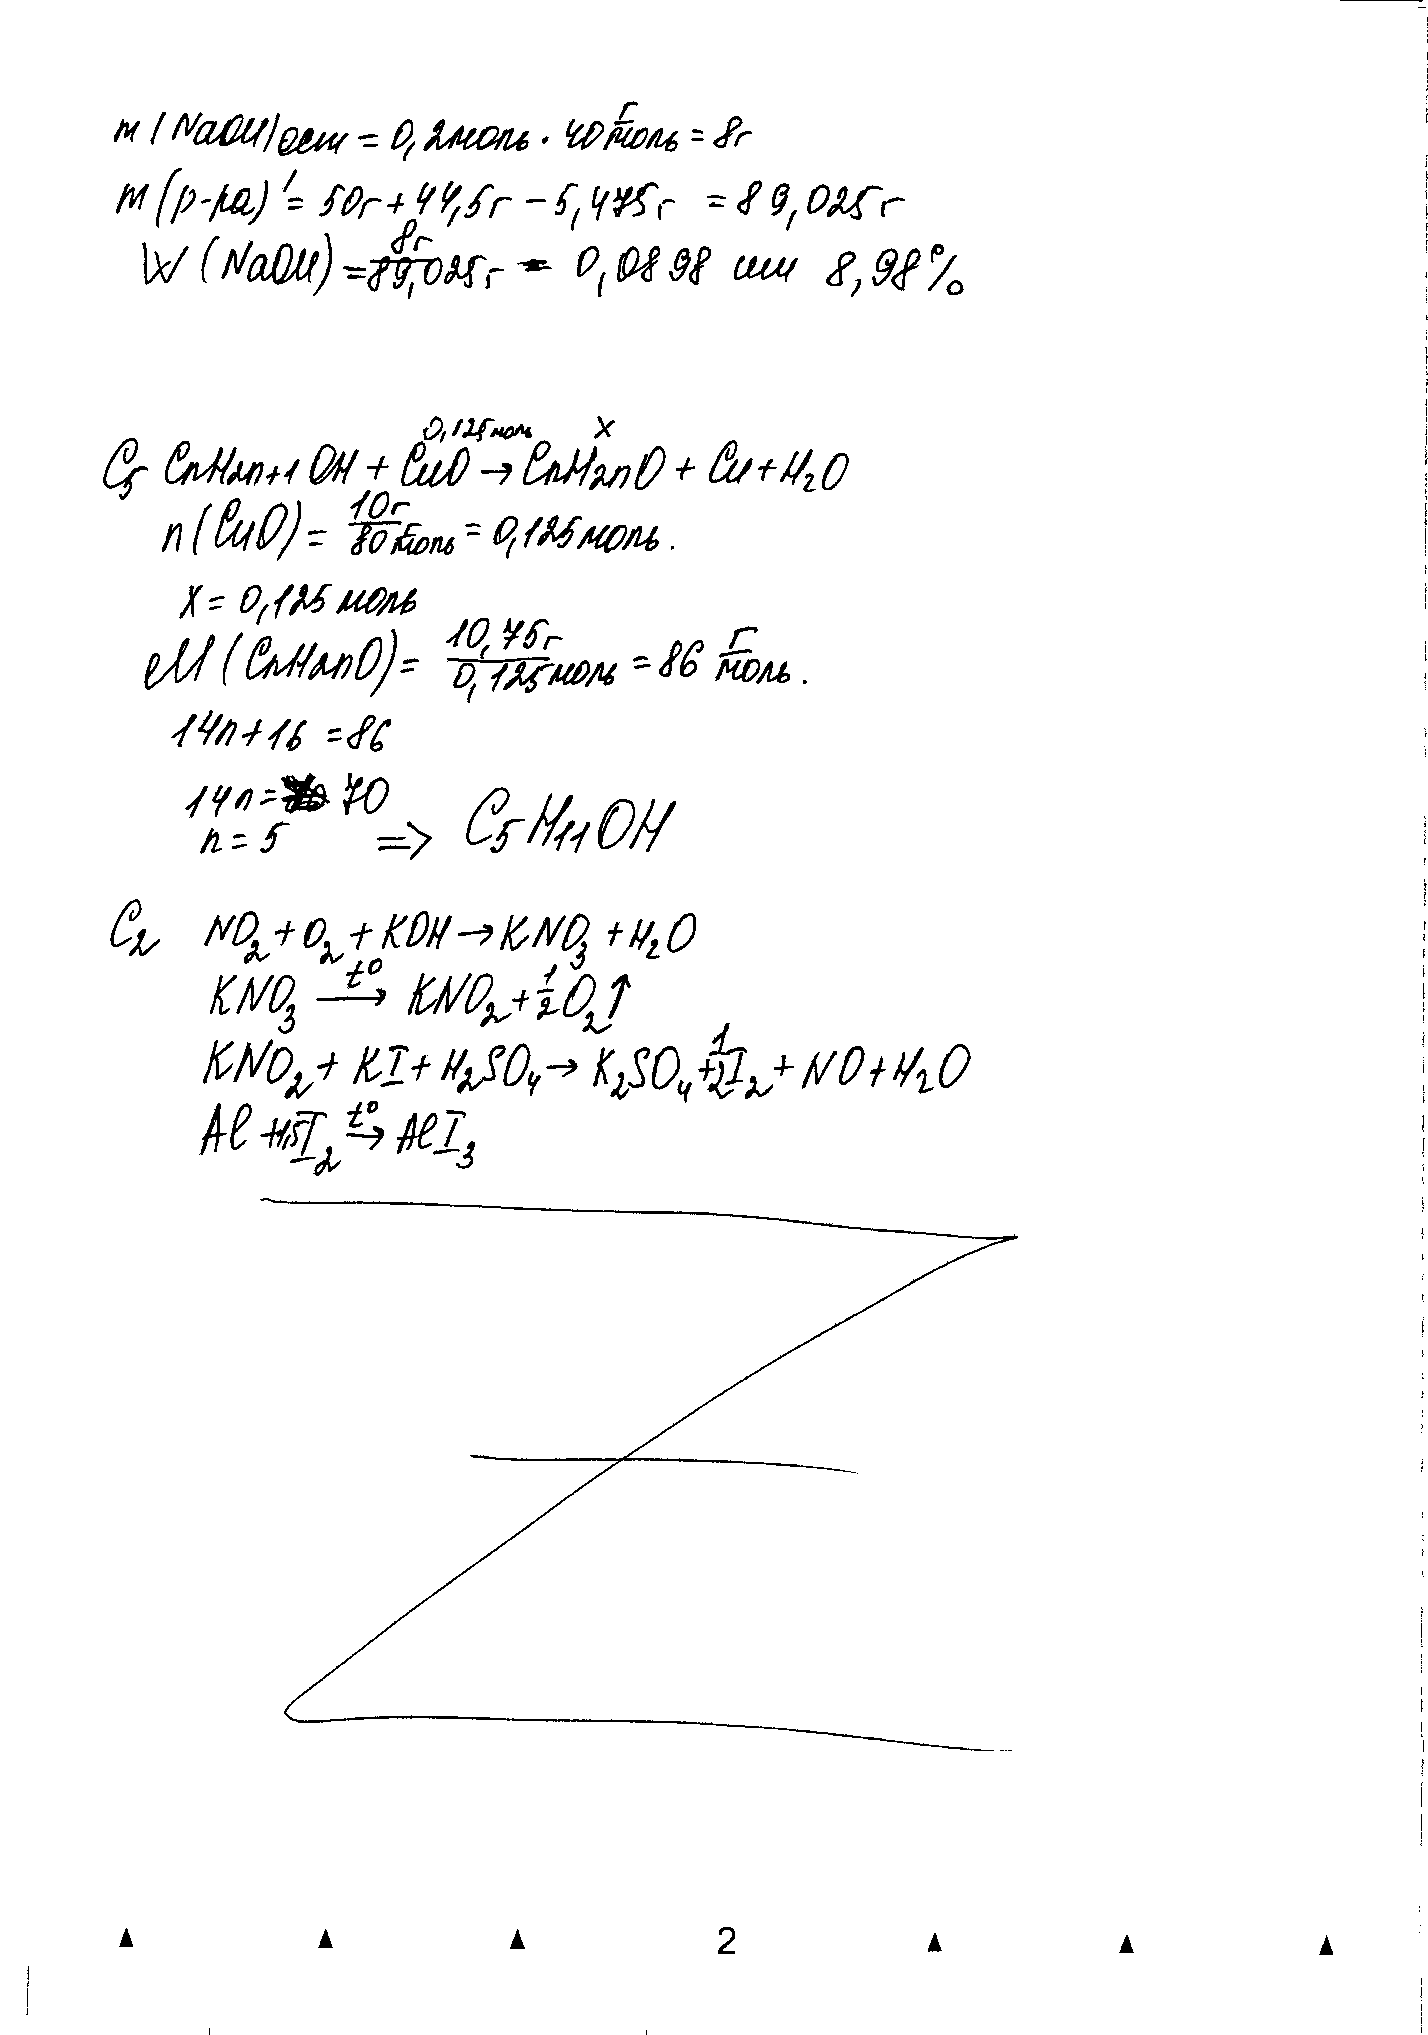 m(NaOH)ост = 0,2моль · 40 г/моль = 8г
m(р-ра)' = 50г + 44,5г - 5,475г = 89,025г
W(NaOH) = 8г/89,025г = 0,0898 или 8,98%
0,125моль x
C5 CnH2n+1OH + CuO → CnH2nO + Cu + H2O
n(CuO) = 10г/80 г/моль = 0,125моль.
x = 0,125 моль
M(CnH2nO) = 10,75г/0,125моль = 86 г/моль.
14n+16 = 86
14n = 70
n = 5 => C5H11OH
C2 NO2 + O2 + KOH → KNO3 + H2O
KNO3 t° → KNO2 + 1/2 O2↑
KNO2 + KI + H2SO4 → K2SO4 + 1/2 I2 + NO + H2O
Al + 1,5I2 t° → AlI3
2